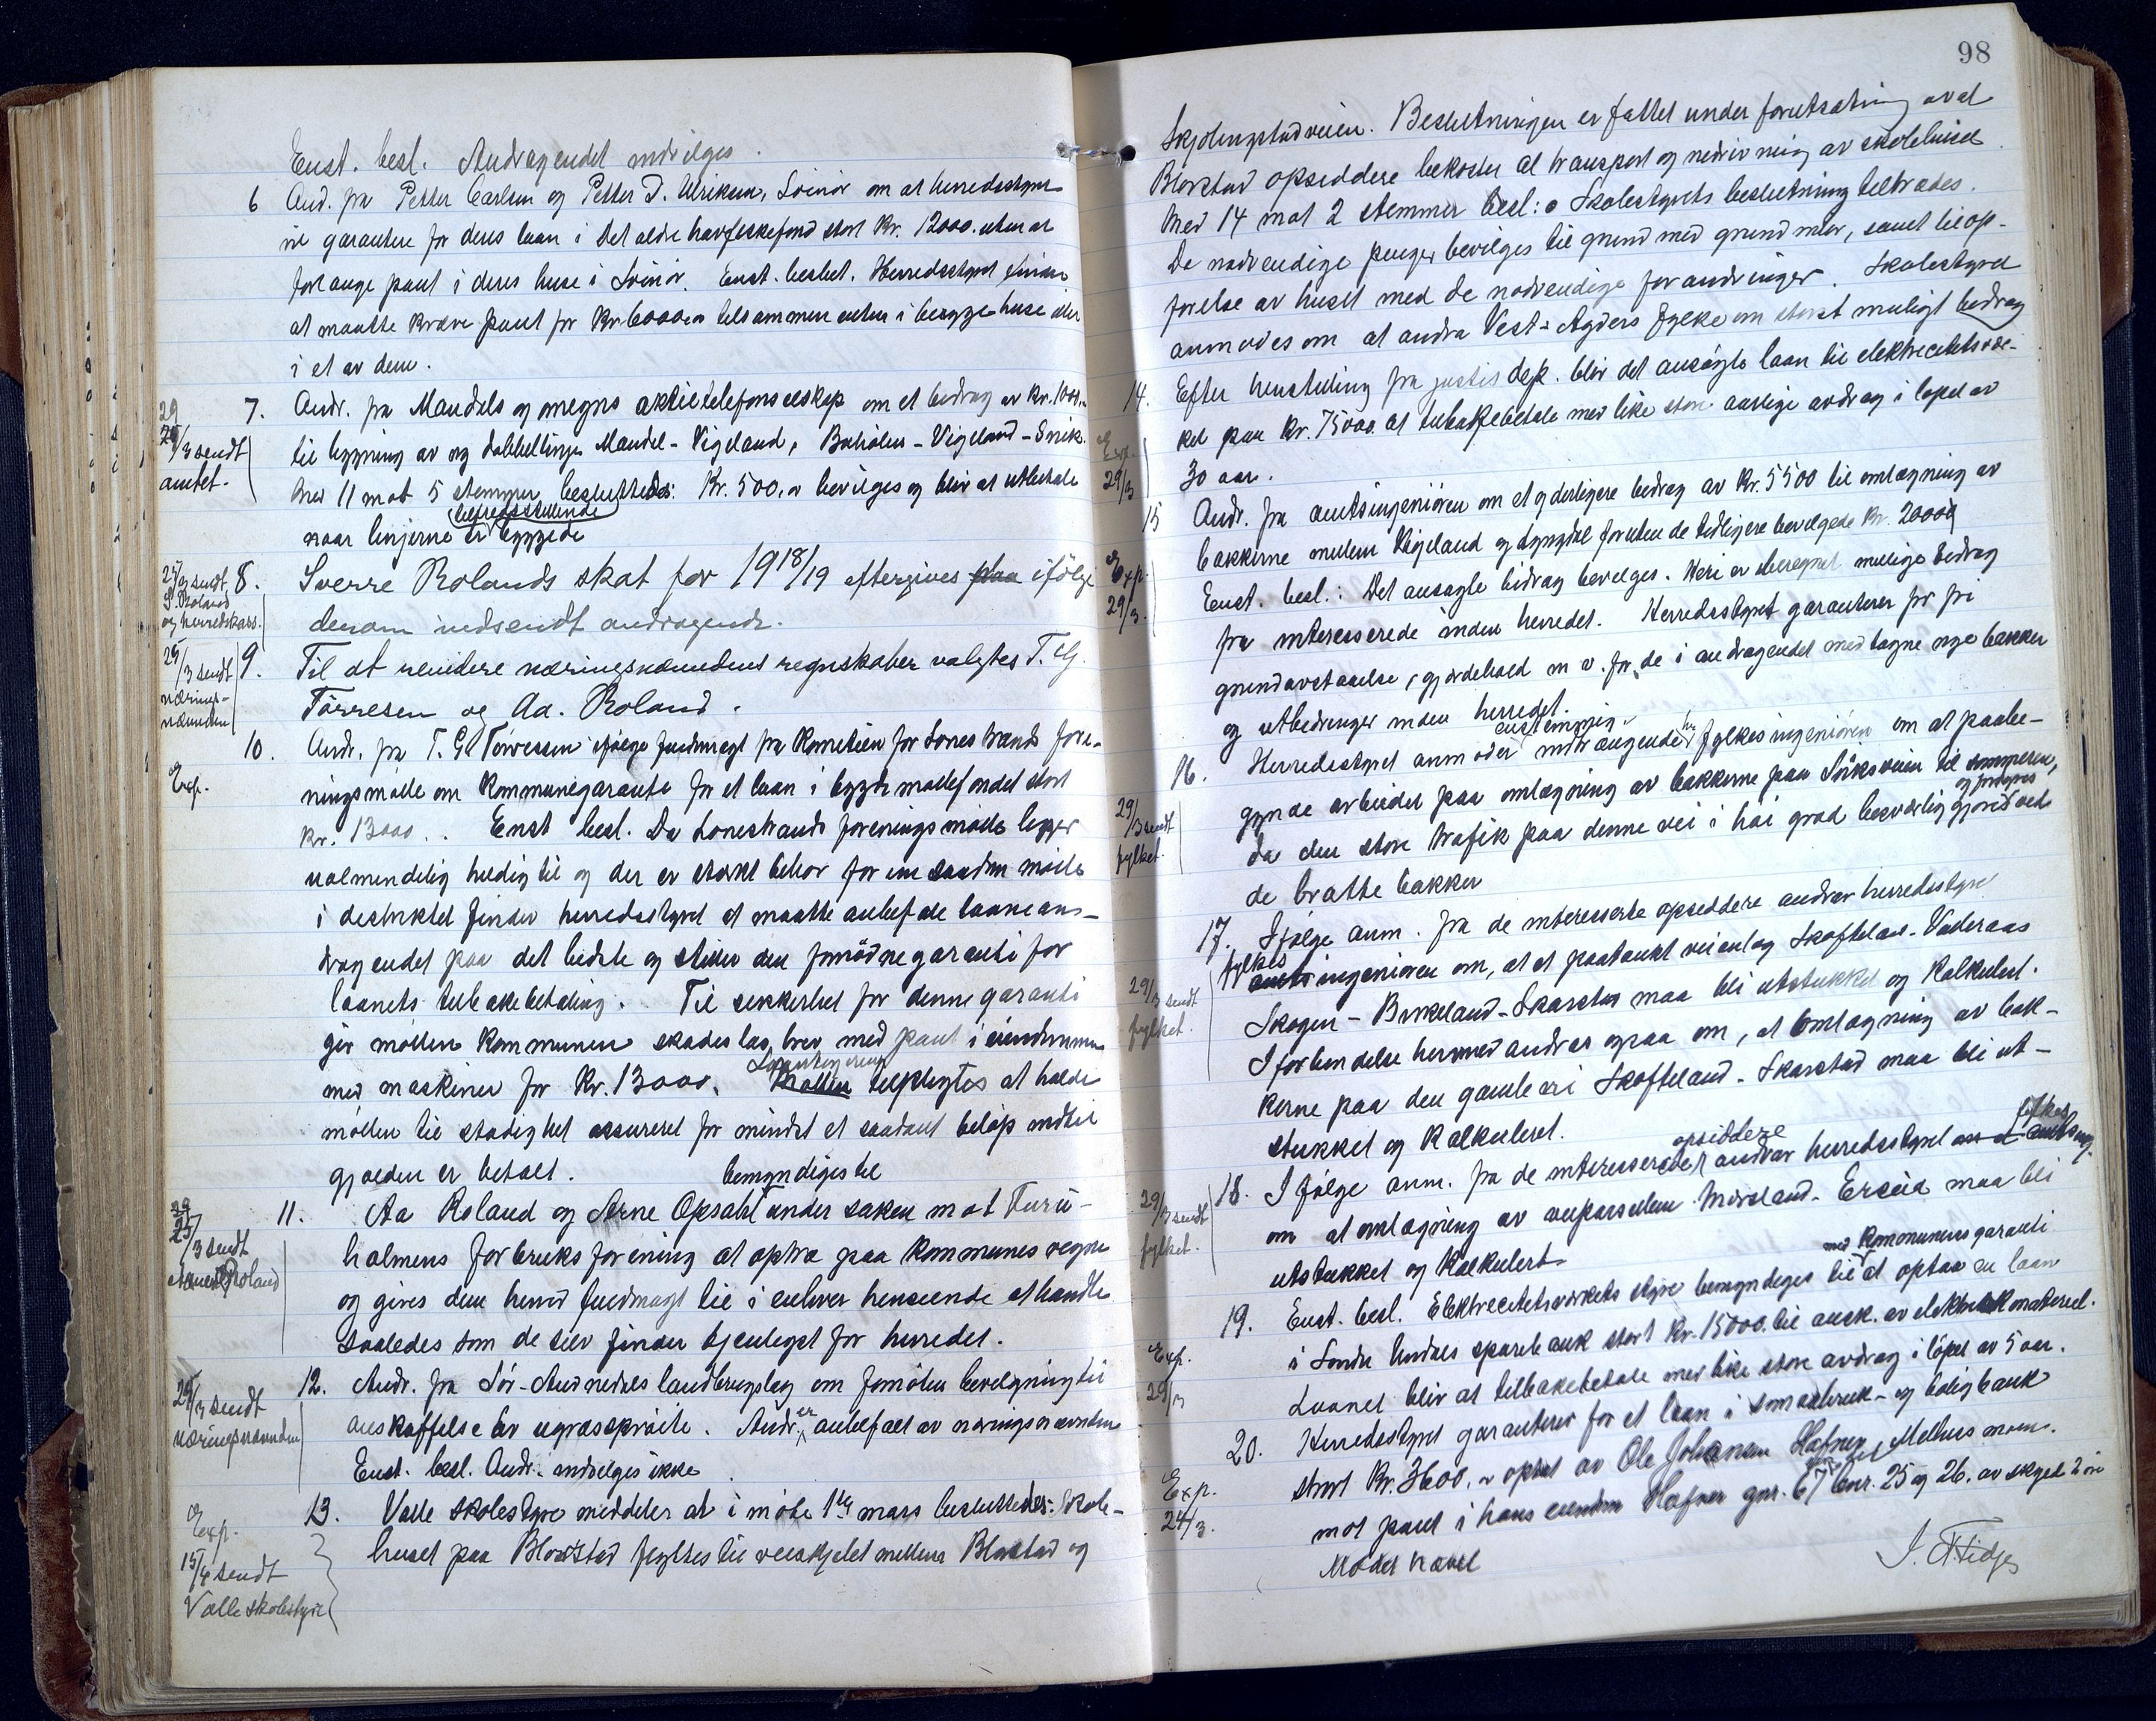 Enst. besl. Andragendet indvilges.
6 And. fra Petter Carlsen og Petter D. Ulriksen, Svinør om at herredsstyret
vil garantere for deres laan i Det ældre havfiskefond stort Kr. 12000. uten at
forlange pant i deres huse i Svinør. Enst. beslut. Herredsstyret finder
at maatte kræve pant for Kr. 6000.00 tilsammen enten i begges huse eller
i et av dem.
29/3 sendt
amtet.
7. Andr. fra Mandals og omegns aktietelefonselskap om et bidrag av kr. 1000.-
til bygning av ny dobbeltlinje Mandal - Vigeland, Baholen - Vigeland - Snik.
Med 11 mot 5 stemmer besluttedes: Kr. 500.00 bevilges og blir at utbetale
naar linjerne er tilfredsstillende byggede
25/3 sendt
S. Roland
og herredskass.
8. Sverre Rolands skat for 1918/19 eftergives paa ifölge
derom indsendt andragende.
25/3 sendt
nærings-
nævnden
9. Til at revidere næringsnævndens regnskaber valgtes T. G.
Törresen og Aa. Roland.
Exp.
10. Andr. fra T. G. Törressen ifølge fuldmagt fra Komiteen for Lonestrands fore-
ningsmølle om Kommunegaranti for et laan i bygdemøllefondet stort
Kr. 13000.. Enst besl. Da Lonestrands foreningsmølle ligger
ualmindelig heldig til og der er stærkt behov for en saadan mølle
i distriktet finder herredsstyret at maatte anbefale laanean-
dragendet paa det bedste og stiller den fornødne garanti for
laanets tilbakebetaling. Til sikkerhet for denne garanti
gir møllen Kommunen skadesløsbrev med pant i eiendommen
med maskiner for Kr. 13000. Møllen Laantageren tilpligtes at holde
møllen til stadighet assureret for mindst et saadant beløp indtil
gjælden er betalt.
29/3
25/3 sendt
Arne Roland
11. Aa Roland og Arne Opsahl bemyndiges til under saken mot Furu-
holmens forbruksforening at optræ paa Kommunes vegne
og gives dem herved fuldmagt til i enhver henseende at handle
saaledes som de selv finder tjenligst for herredet.
25/3 sendt
næringsnævnden
12. Andr. fra Sør-Audnedals landbrugslag om fornøden bevilgning til
anskaffelse av ugræssprøite. Andr. er anbefalt av næringsnævnden
Enst. besl. Andr. indvilges ikke.
Exp.
15/4 sendt
Valle skolestyre
13. Valle skolestyre meddeler at i møte 1ste mars besluttedes: Skole-
huset paa Blørstad flyttes til veiskjelet mellem Blørstad og
98
Skjølingstadveien. Beslutningen er fattet under forutsætning av at
Blørstad opsiddere bekoster al transport og nedrivning av skolehuset.
Med 14 mot 2 stemmer besl: Skolestyrets beslutning tiltrædes.
De nødvendige penger bevilges til grund med grundmur, samt til op-
førelse av huset med de nødvendige forandringer. Skolestyret
anmodes om at andra Vest-Agders fylke om størst muligt bidrag
Exp.
29/3
14. Efter henstilling fra justis dep. blir det ansøgte laan til elektricitetsvær-
ket paa Kr. 75000. at tilbakebetale med like store aarlige avdrag i løpet av
30 aar.
Exp.
29/3.
15 Andr. fra amtsingeniøren om et yderligere bidrag av Kr. 5500 til omlægning av
bakkerne mellem Vigeland og Lyngdal foruten de tidligere bevilgede Kr. 20000
Enst. besl.: Det ansøgte bidrag bevilges. Heri er iberegnet mulige bidrag
fra interesserede inden herredet. Herredsstyret garanterer for fri
grundavstaaelse, gjerdehold m v. for de i andragendet medtagne nye bakker
og utbedringer inden herredet.
29/3 sendt
fylket.
16. Herredsstyret anmoder enstemmig indtrængende hr fylkesingeniøren om at paabe-
gynde arbeidet paa omlægning av bakkerne paa Sniksveien til sommeren,
da den store trafik paa denne vei i høi grad besværliggjøres og fordyres ved
de bratte bakker
29/3 sendt
fylket.
17. Ifølge anm. fra de interesserte opsiddere andrar herredsstyre
amts fylkes ingeniøren om, at et paatænkt veianlæg Skofteland - Valleraas
Skogen - Birkeland - Skarstad maa bli utstukket og Kalkulert.
I forbindelse hermed andras ogsaa om, at omlægning av bak-
kerne paa den gamle vei Skofteland - Skarstad maa bli ut-
stukket og Kalkuleret.
29/3 sendt
fylket.
18. Ifølge anm. fra de interesserede opsiddere andrar herredsstyret om at amts fylkes ing.
om at omlægning av veiparsellen Møreland - Erseia maa bli
utstukket og Kalkulert
Exp.
29/3
19. Enst. besl. Elektricitetsværkets styre bemyndiges til med Kommunens garanti at optaa en laan
i Søndre Undals sparebank stort Kr. 15000. til ansk. av elektrisk materiel.
Laanet blir at tilbakebetale med like store avdrag i løpet av 5 aar.
Exp.
24/3.
20. Herredsstyret garanterer for et laan i smaabruk- og boligbank
stort Kr. 3600.00 optat av Ole Johannan Hafner, Melhus mom.
mot pant i hans eiendom Hafner gnr. 67 bnr. 25 og 26. av skyld 2 øre
Møtet hævet